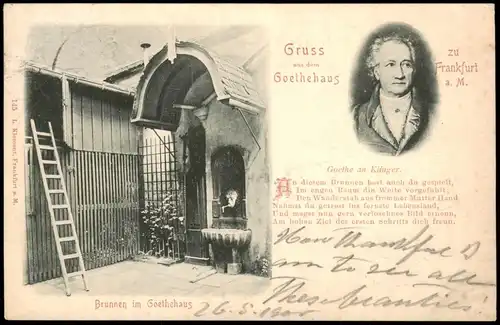 Gruss
aus dem
Goethehaus
zu
Frankfurt
a. M.
Goethe an Klinger.
An diesem Brunnen hast auch du gespielt,
Im engen Raum die Weite vorgefühlt;
Den Wanderstab aus frommer Mutter Hand
Nahmst du getrost ins fernste Lebensland,
Und magst nun gern verloschnes Bild erneun,
Am hohen Ziel des ersten Schritts dich freun.
How thankful I
am to see all
these beauties!
Brunnen im Goethehaus
26-5-1900
145 Frankfurt a. M.